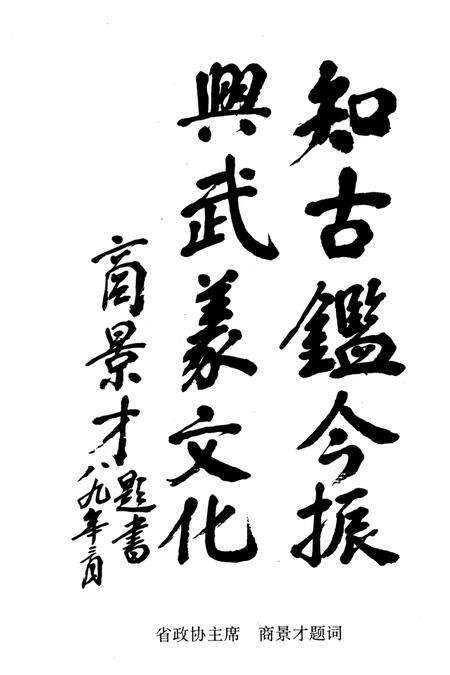 知古鑑今振
興武义文化
商景才题书
八九年二月
省政协主席 商景才题词